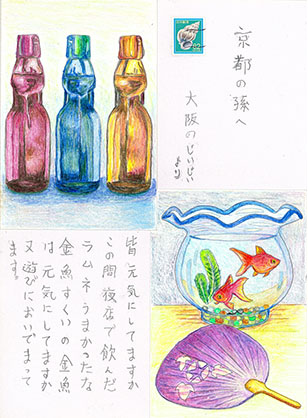 京都の孫へ
大阪のじいじい
より
皆元気にしてますか
この間夜店で飲んだ
ラムネうまかったな
金魚すくいの金魚
は元気にしてますか
又遊びにおいでまって
ます。